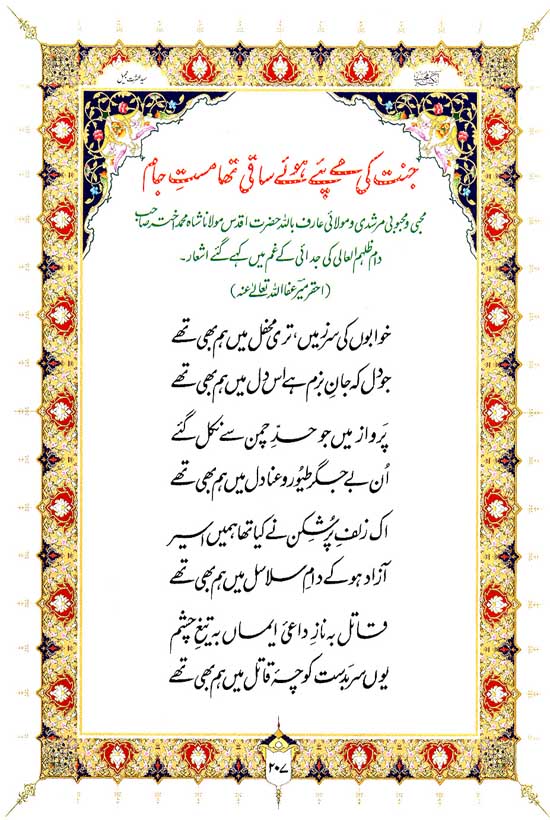 سید عشرت جمیل
جنت کی مے پئے ہوئے ساقی تھا مستِ جام
محبی و محبوبی مرشدی و مولائی عارف باللہ حضرت اقدس مولانا شاہ محمد اختر صاحب
دام ظلہم العالی کی جدائی کے غم میں کہے گئے اشعار۔
(احقر میرؔ عفا اللہ تعالیٰ عنہ)
خوابوں کی سرزمیں، تری محفل میں ہم بھی تھے
جو دل کہ جانِ بزم ہے اس دل میں ہم بھی تھے
پَرواز میں جو حدِّ چمن سے نکل گئے
اُن بے جگر طیور و عنادل میں ہم بھی تھے
اک زلفِ پُرشِکن نے کیا تھا ہمیں اسیر
آزاد ہو کے دامِ سلاسل میں ہم بھی تھے
قاتل بہ نازِ داعیٔ ایماں بہ تیغِ چشم
یوں سر بدست کوچۂ قاتل میں ہم بھی تھے
۲۰۷